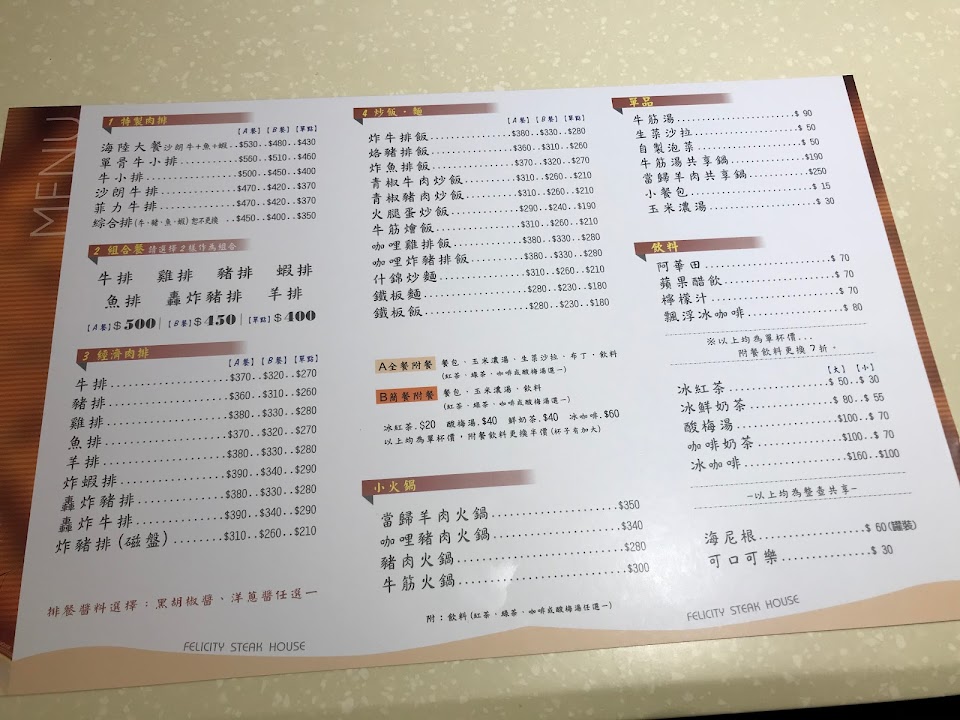 MENU
1 特製肉排
【A餐】【B餐】【單點】
海陸大餐 沙朗牛+魚+蝦..$530..$480..$430
單骨牛小排..................$560..$510..$460
牛小排........................$500..$450..$400
沙朗牛排.....................$470..$420..$370
菲力牛排.....................$470..$420..$370
綜合排(牛、豬、魚、蝦)恕不更換 ..$450..$400..$350
2 組合餐 請選擇2樣作為組合
牛排 雞排 豬排 蝦排
魚排 轟炸豬排 羊排
【A餐】$500|【B餐】$450|【單點】$400
3 經濟肉排
【A餐】【B餐】【單點】
牛排....................$370..$320..$270
豬排....................$360..$310..$260
雞排....................$380..$330..$280
魚排....................$370..$320..$270
羊排....................$380..$330..$280
炸蝦排.................$390..$340..$290
轟炸豬排..............$380..$330..$280
轟炸牛排..............$390..$340..$290
炸豬排(磁盤)........$310..$260..$210
排餐醬料選擇：黑胡椒醬、洋蔥醬任選一
FELICITY STEAK HOUSE
4 炒飯．麵
【A餐】【B餐】【單點】
炸牛排飯..................$380..$330..$280
烙豬排飯..................$360..$310..$260
炸魚排飯..................$370..$320..$270
青椒牛肉炒飯............$310..$260..$210
青椒豬肉炒飯............$310..$260..$210
火腿蛋炒飯...............$290..$240..$190
牛筋燴飯..................$310..$260..$210
咖哩雞排飯...............$380..$330..$280
咖哩炸豬排飯............$380..$330..$280
什錦炒麵..................$310..$260..$210
鐵板麵.....................$280..$230..$180
鐵板飯.....................$280..$230..$180
A全餐附餐 餐包、玉米濃湯，生菜沙拉、布丁，飲料
(紅茶、綠茶、咖啡或酸梅湯選一)
B簡餐附餐 餐包、玉米濃湯，飲料
(紅茶、綠茶、咖啡或酸梅湯選一)
冰紅茶.$20 酸梅湯.$40 鮮奶茶.$40 冰咖啡.$60
以上均為單杯價，附餐飲料更換半價(杯子有加大)
小火鍋
當歸羊肉火鍋.....................$350
咖哩豬肉火鍋.....................$340
豬肉火鍋...........................$280
牛筋火鍋...........................$300
附：飲料(紅茶、綠茶、咖啡或酸梅湯任選一)
單品
牛筋湯...........................$ 90
生菜沙拉........................$ 50
自製泡菜........................$ 50
牛筋湯共享鍋..................$190
當歸羊肉共享鍋...............$250
小餐包...........................$ 15
玉米濃湯........................$ 30
飲料
阿華田...........................$ 70
蘋果醋飲........................$ 70
檸檬汁...........................$ 70
飄浮冰咖啡.....................$ 80
※以上均為單杯價...
附餐飲料更換7折。
【大】【小】
冰紅茶..................$ 50..$ 30
冰鮮奶茶...............$ 80..$ 55
酸梅湯..................$100..$ 70
咖啡奶茶...............$100..$ 70
冰咖啡..................$160..$100
–以上均為整壺共享–
海尼根..................$ 60(罐裝)
可口可樂...............$ 30
FELICITY STEAK HOUSE